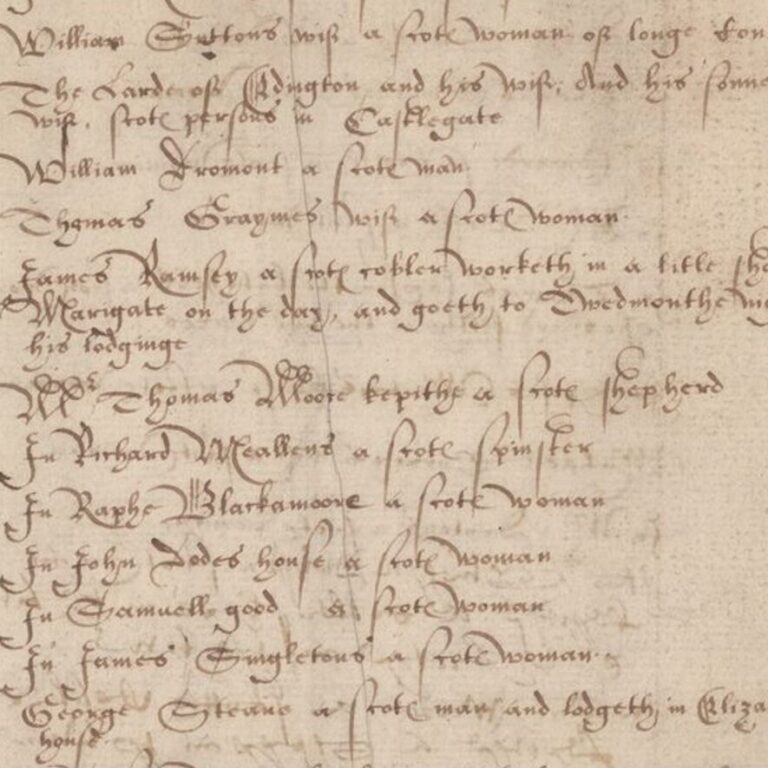 William Suttons wife a scote woman of longe con
The Larde of Edington and his wife, And his sonne
wife, scote persons in Castlegate
William Dromont a scote man
Thomas Graymes wife a scote woman
James Ramsey a scote cobler worketh in a litle sho
Marigate on the day, and goeth to Twedmouthe
his lodginge
Mr Thomas Moore kepithe a scote shepherd
In Richard Meallens a scote spinster
In Raphe Blackamoore a scote woman
In John Dodes house a scote woman
In Samuell good a scote woman
In James Singletons a scote woman
George Steano a scote man and lodgeth in Eliza
house